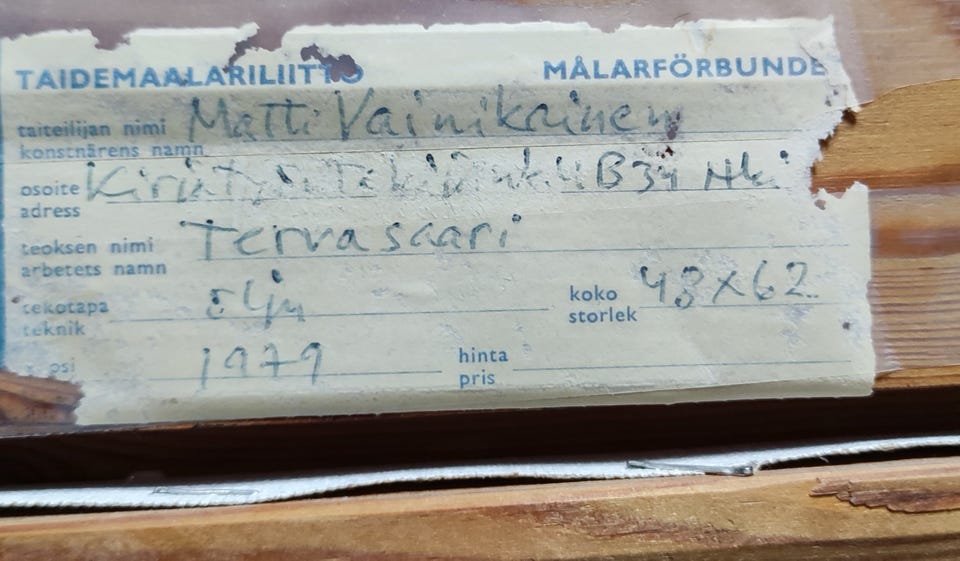 TAIDEMAALARILIITTO MÅLARFÖRBUNDE
taiteilijan nimi Matti Vainikainen
konstnärens namn
osoite 4 B 34 Hki
adress
teoksen nimi Tervasaari
arbetets namn
tekotapa öljy koko 48x62
teknik storlek
1979 hinta
pris